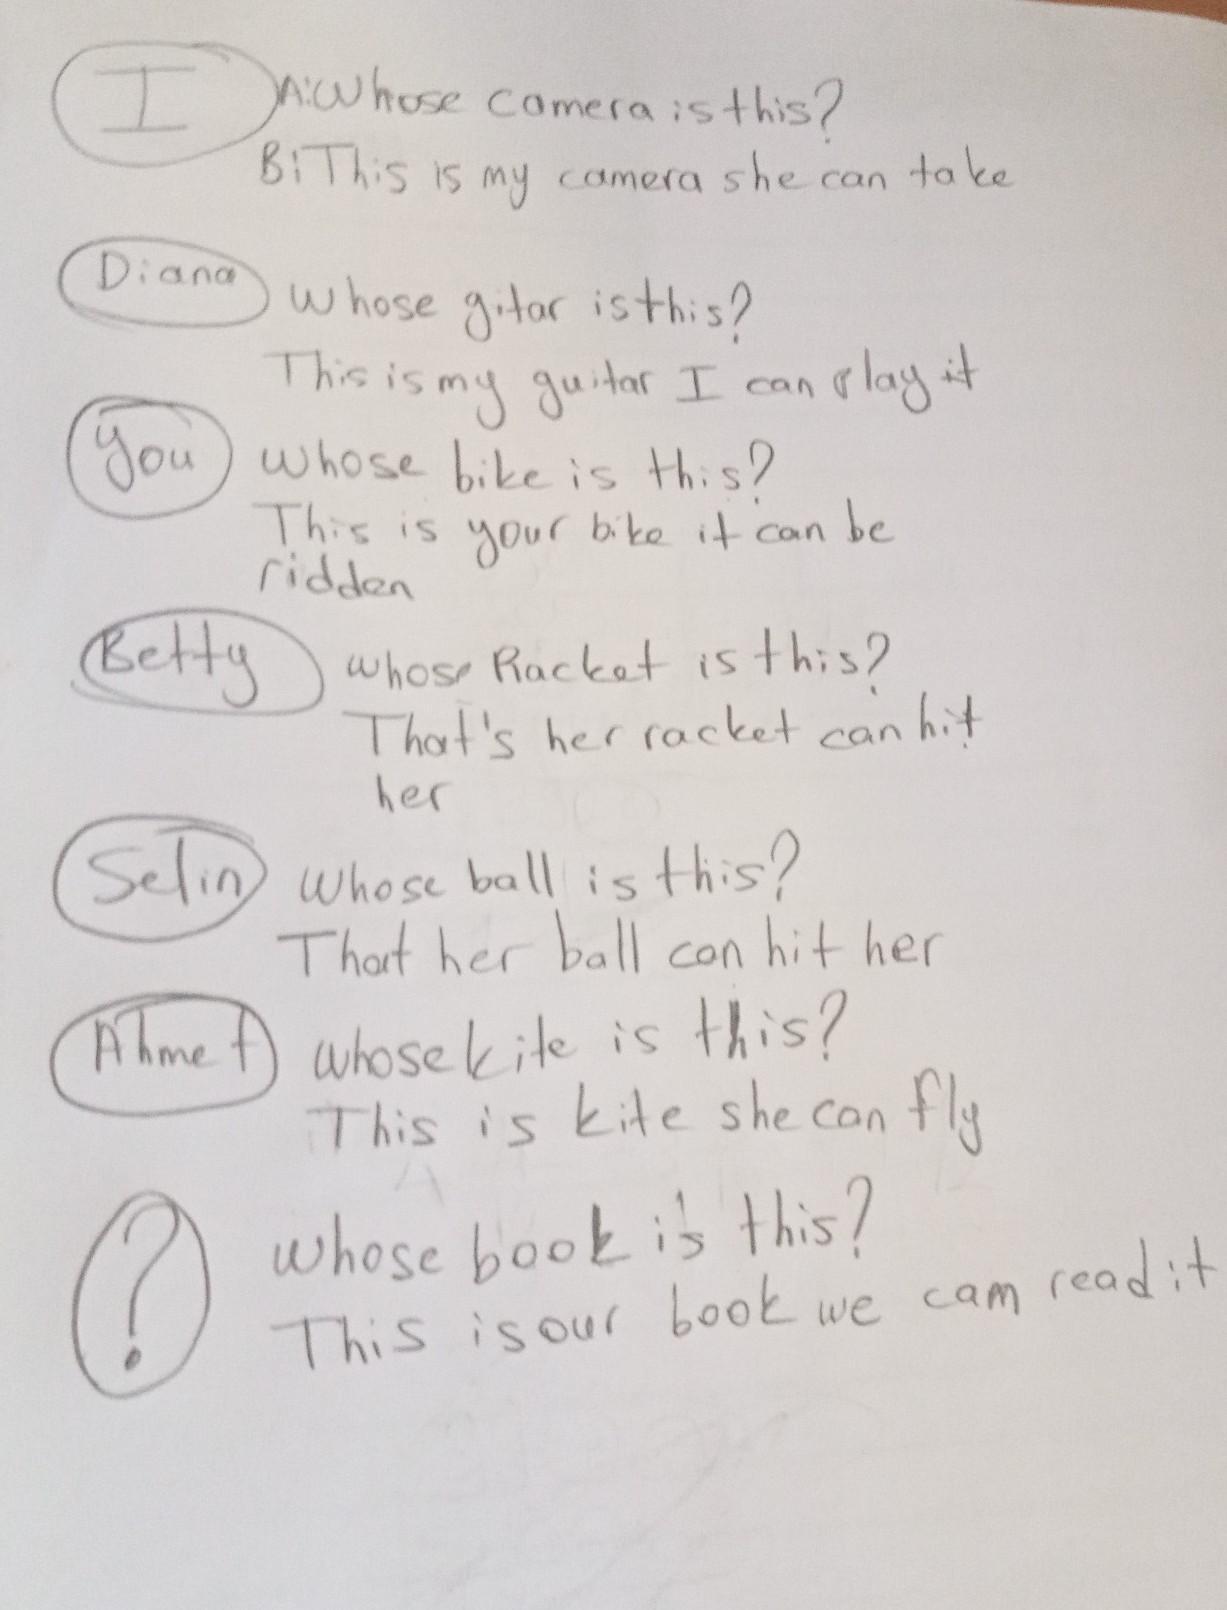 I
A: Whose camera is this?
B: This is my camera she can take
Diana
Whose gitar is this?
This is my guitar I can play it
You
Whose bike is this?
This is your bike it can be
ridden
Betty
whose Racket is this?
That's her racket can hit
her
Selin
Whose ball is this?
That her ball can hit her
Ahmet
whose kite is this?
This is kite she can fly
?
whose book is this?
This is our book we cam read it